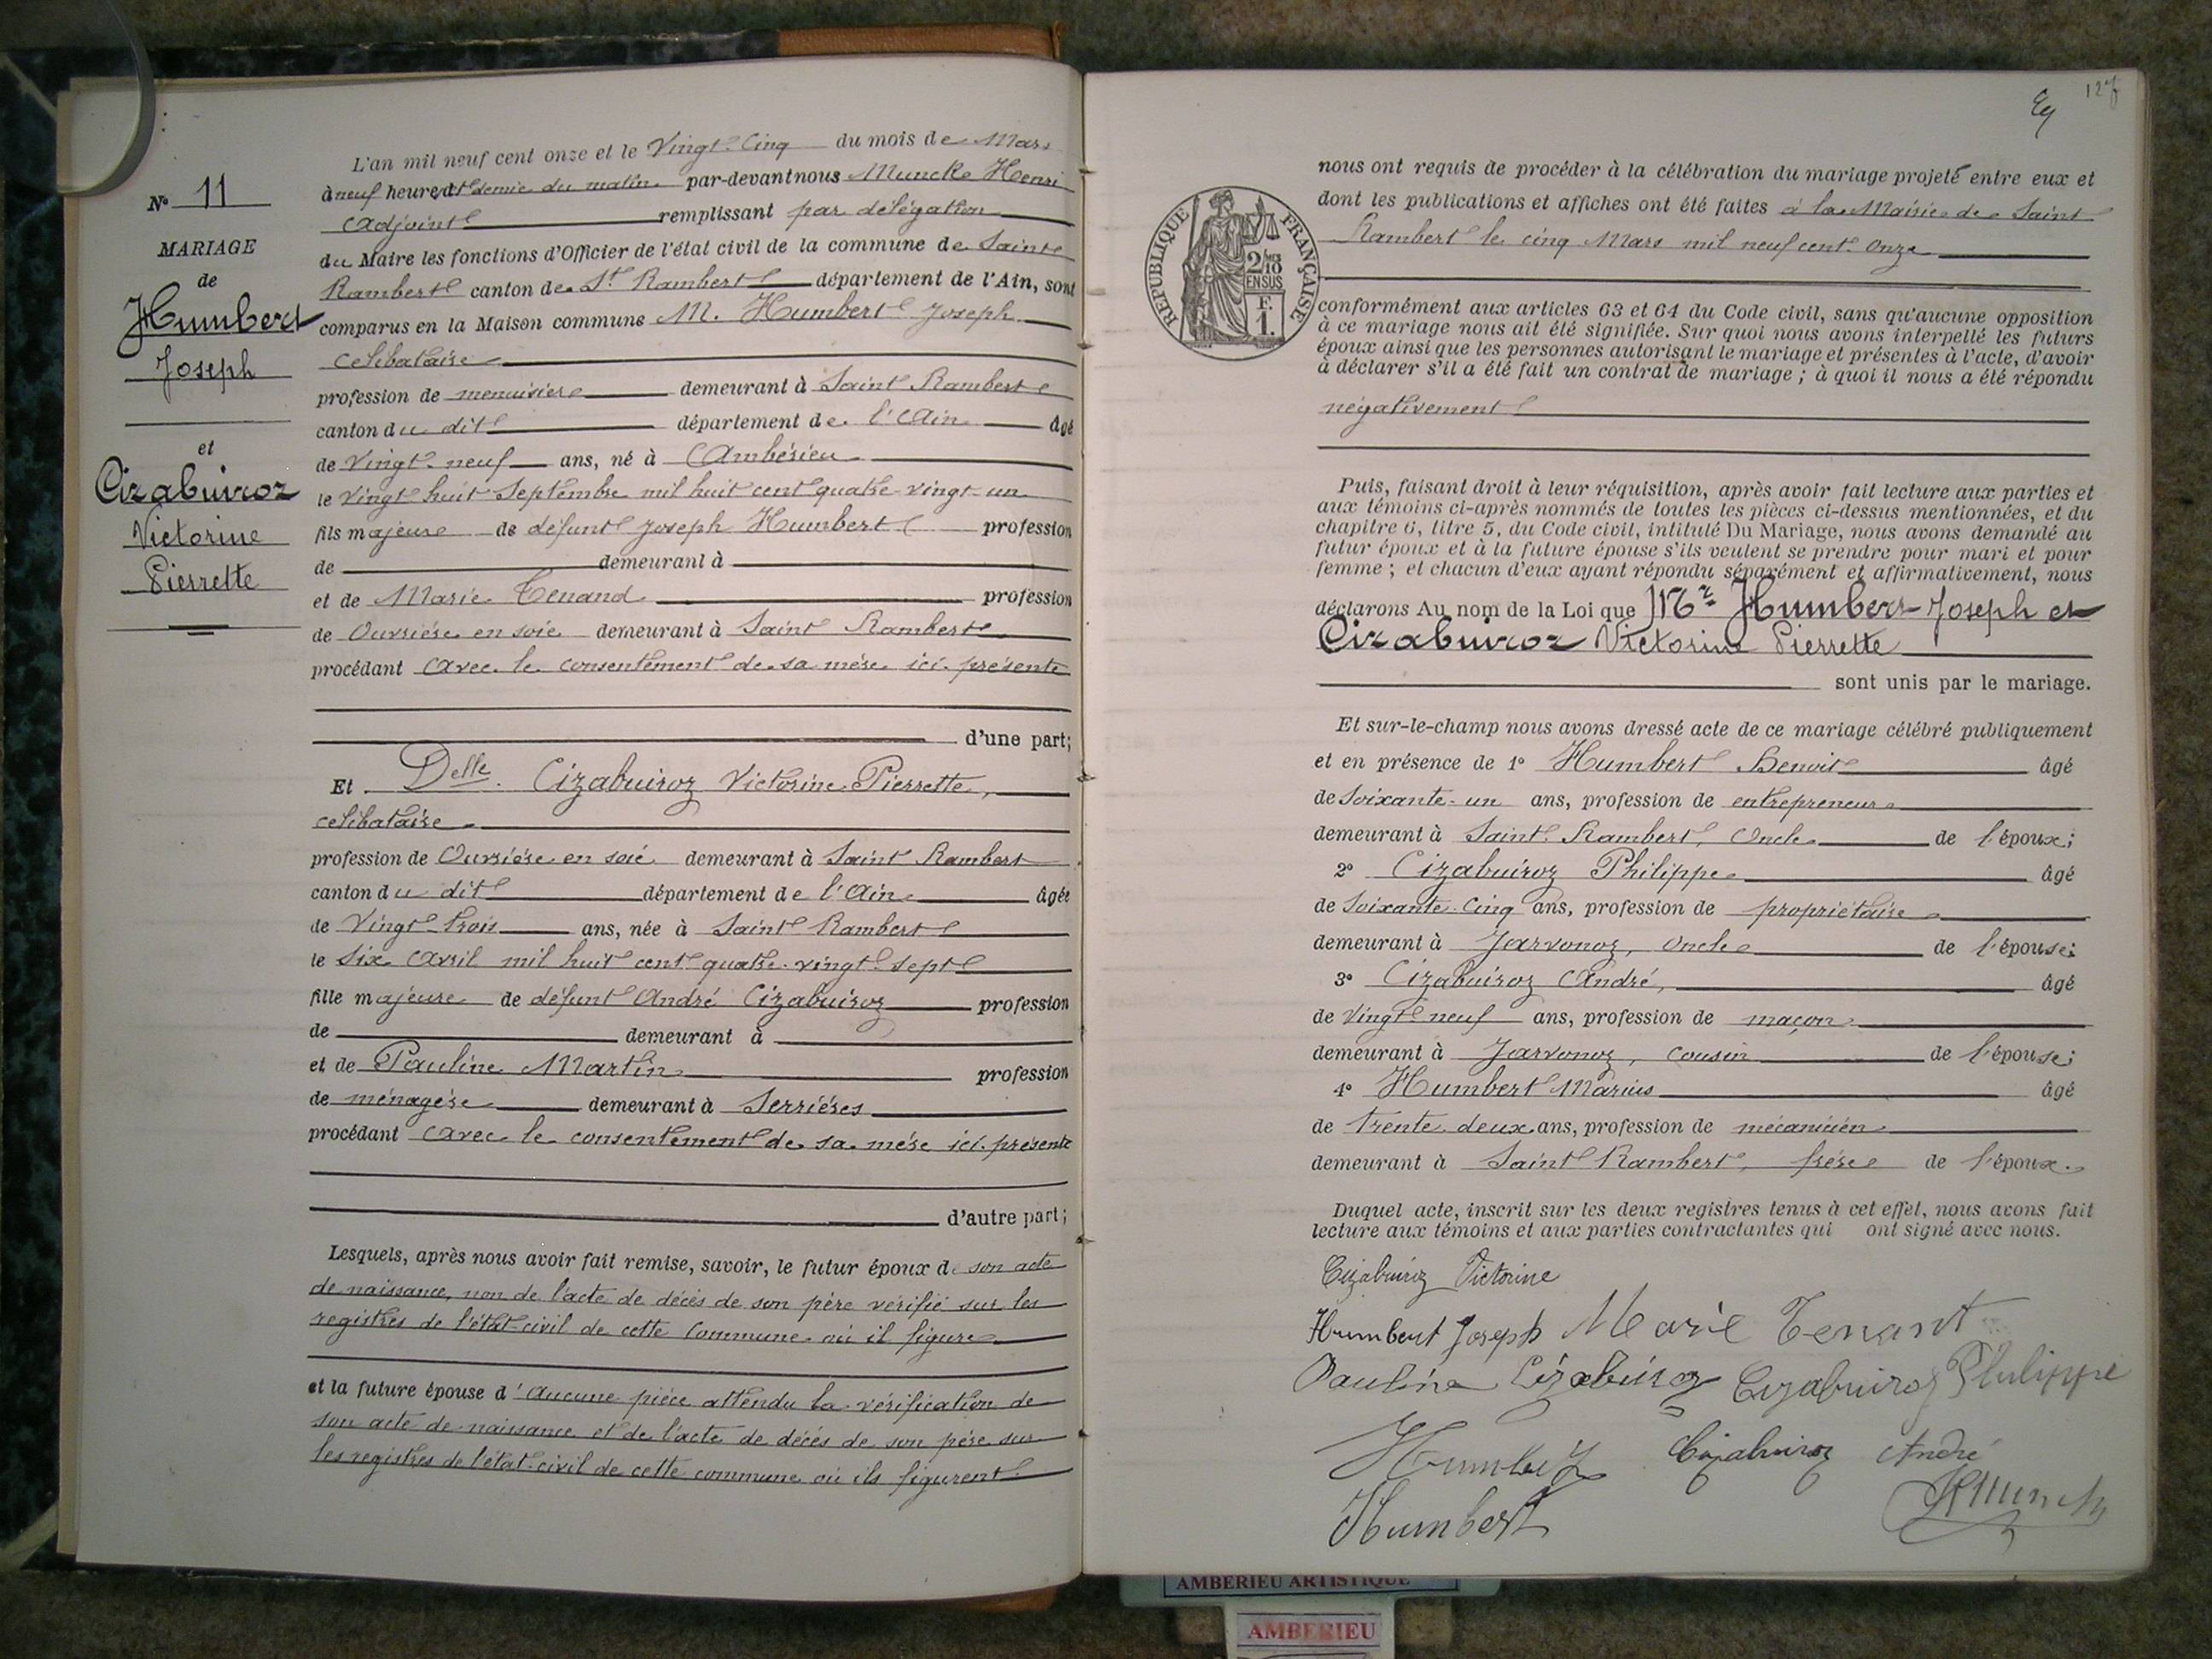 N° 11
MARIAGE
de
Humbert
Joseph
et
Cizabuiroz
Victorine
Pierrette
L'an mil neuf cent onze et le Vingt-Cinq du mois de Mars
à neuf heures et demie du matin par-devant nous Muncke Henri
adjoint remplissant par délégation
du Maire les fonctions d'Officier de l'état civil de la commune de Saint
Rambert canton de St Rambert département de l'Ain, sont
comparus en la Maison commune M. Humbert Joseph
célibataire
profession de menuisier demeurant à Saint Rambert
canton du dit département de l'Ain âgé
de Vingt-neuf ans, né à Ambérieu
le vingt huit Septembre mil huit cent quatre-vingt-un
fils majeur de défunt Joseph Humbert profession
de demeurant à
et de Marie Tenand profession
de Ouvrière en soie demeurant à Saint Rambert
procédant avec le consentement de sa mère ici présente
d'une part;
Et Delle Cizabuiroz Victorine Pierrette,
célibataire
profession de Ouvrière en soie demeurant à Saint Rambert
canton du dit département de l'Ain âgée
de Vingt-trois ans, née à Saint Rambert
le Six Avril mil huit cent quatre-vingt-sept
fille majeure de défunt André Cizabuiroz profession
de demeurant à
et de Pauline Martin profession
de ménagère demeurant à Serrières
procédant avec le consentement de sa mère ici présente
d'autre part;
Lesquels, après nous avoir fait remise, savoir, le futur époux de son acte
de naissance, non de l'acte de décès de son père vérifié sur les
registres de l'état-civil de cette commune où il figure
et la future épouse d'aucune pièce attendu la vérification de
son acte de naissance et de l'acte de décès de son père sur
les registres de l'état-civil de cette commune où ils figurent.
127
RÉPUBLIQUE FRANÇAISE
2/10
EN SUS
F.
1.
nous ont requis de procéder à la célébration du mariage projeté entre eux et
dont les publications et affiches ont été faites à la Mairie de Saint
Rambert le cinq Mars mil neuf cent onze
conformément aux articles 63 et 64 du Code civil, sans qu'aucune opposition
à ce mariage nous ait été signifiée. Sur quoi nous avons interpellé les futurs
époux ainsi que les personnes autorisant le mariage et présentes à l'acte, d'avoir
à déclarer s'il a été fait un contrat de mariage ; à quoi il nous a été répondu
négativement
Puis, faisant droit à leur réquisition, après avoir fait lecture aux parties et
aux témoins ci-après nommés de toutes les pièces ci-dessus mentionnées, et du
chapitre 6, titre 5, du Code civil, intitulé Du Mariage, nous avons demandé au
futur époux et à la future épouse s'ils veulent se prendre pour mari et pour
femme ; et chacun d'eux ayant répondu séparément et affirmativement, nous
déclarons Au nom de la Loi que Mr Humbert Joseph et
Cizabuiroz Victorine Pierrette
sont unis par le mariage.
Et sur-le-champ nous avons dressé acte de ce mariage célébré publiquement
et en présence de 1° Humbert Benoit âgé
de Soixante-un ans, profession de entrepreneur
demeurant à Saint Rambert, Oncle de l'époux;
2° Cizabuiroz Philippe âgé
de Soixante-Cinq ans, profession de propriétaire
demeurant à Javornoz, oncle de l'épouse;
3° Cizabuiroz André, âgé
de Vingt-neuf ans, profession de maçon
demeurant à Javornoz, cousin de l'épouse;
4° Humbert Marius âgé
de trente deux ans, profession de mécanicien
demeurant à Saint Rambert, frère de l'époux.
Duquel acte, inscrit sur les deux registres tenus à cet effet, nous avons fait
lecture aux témoins et aux parties contractantes qui ont signé avec nous.
Cizabuiroz Victorine
Humbert Joseph Marie Tenant
Pauline Cizabuiroz Cizabuiroz Philippe
Humbert Cizabuiroz André
Humbert
AMBERIEU ARTISTIQUE
AMBERIEU